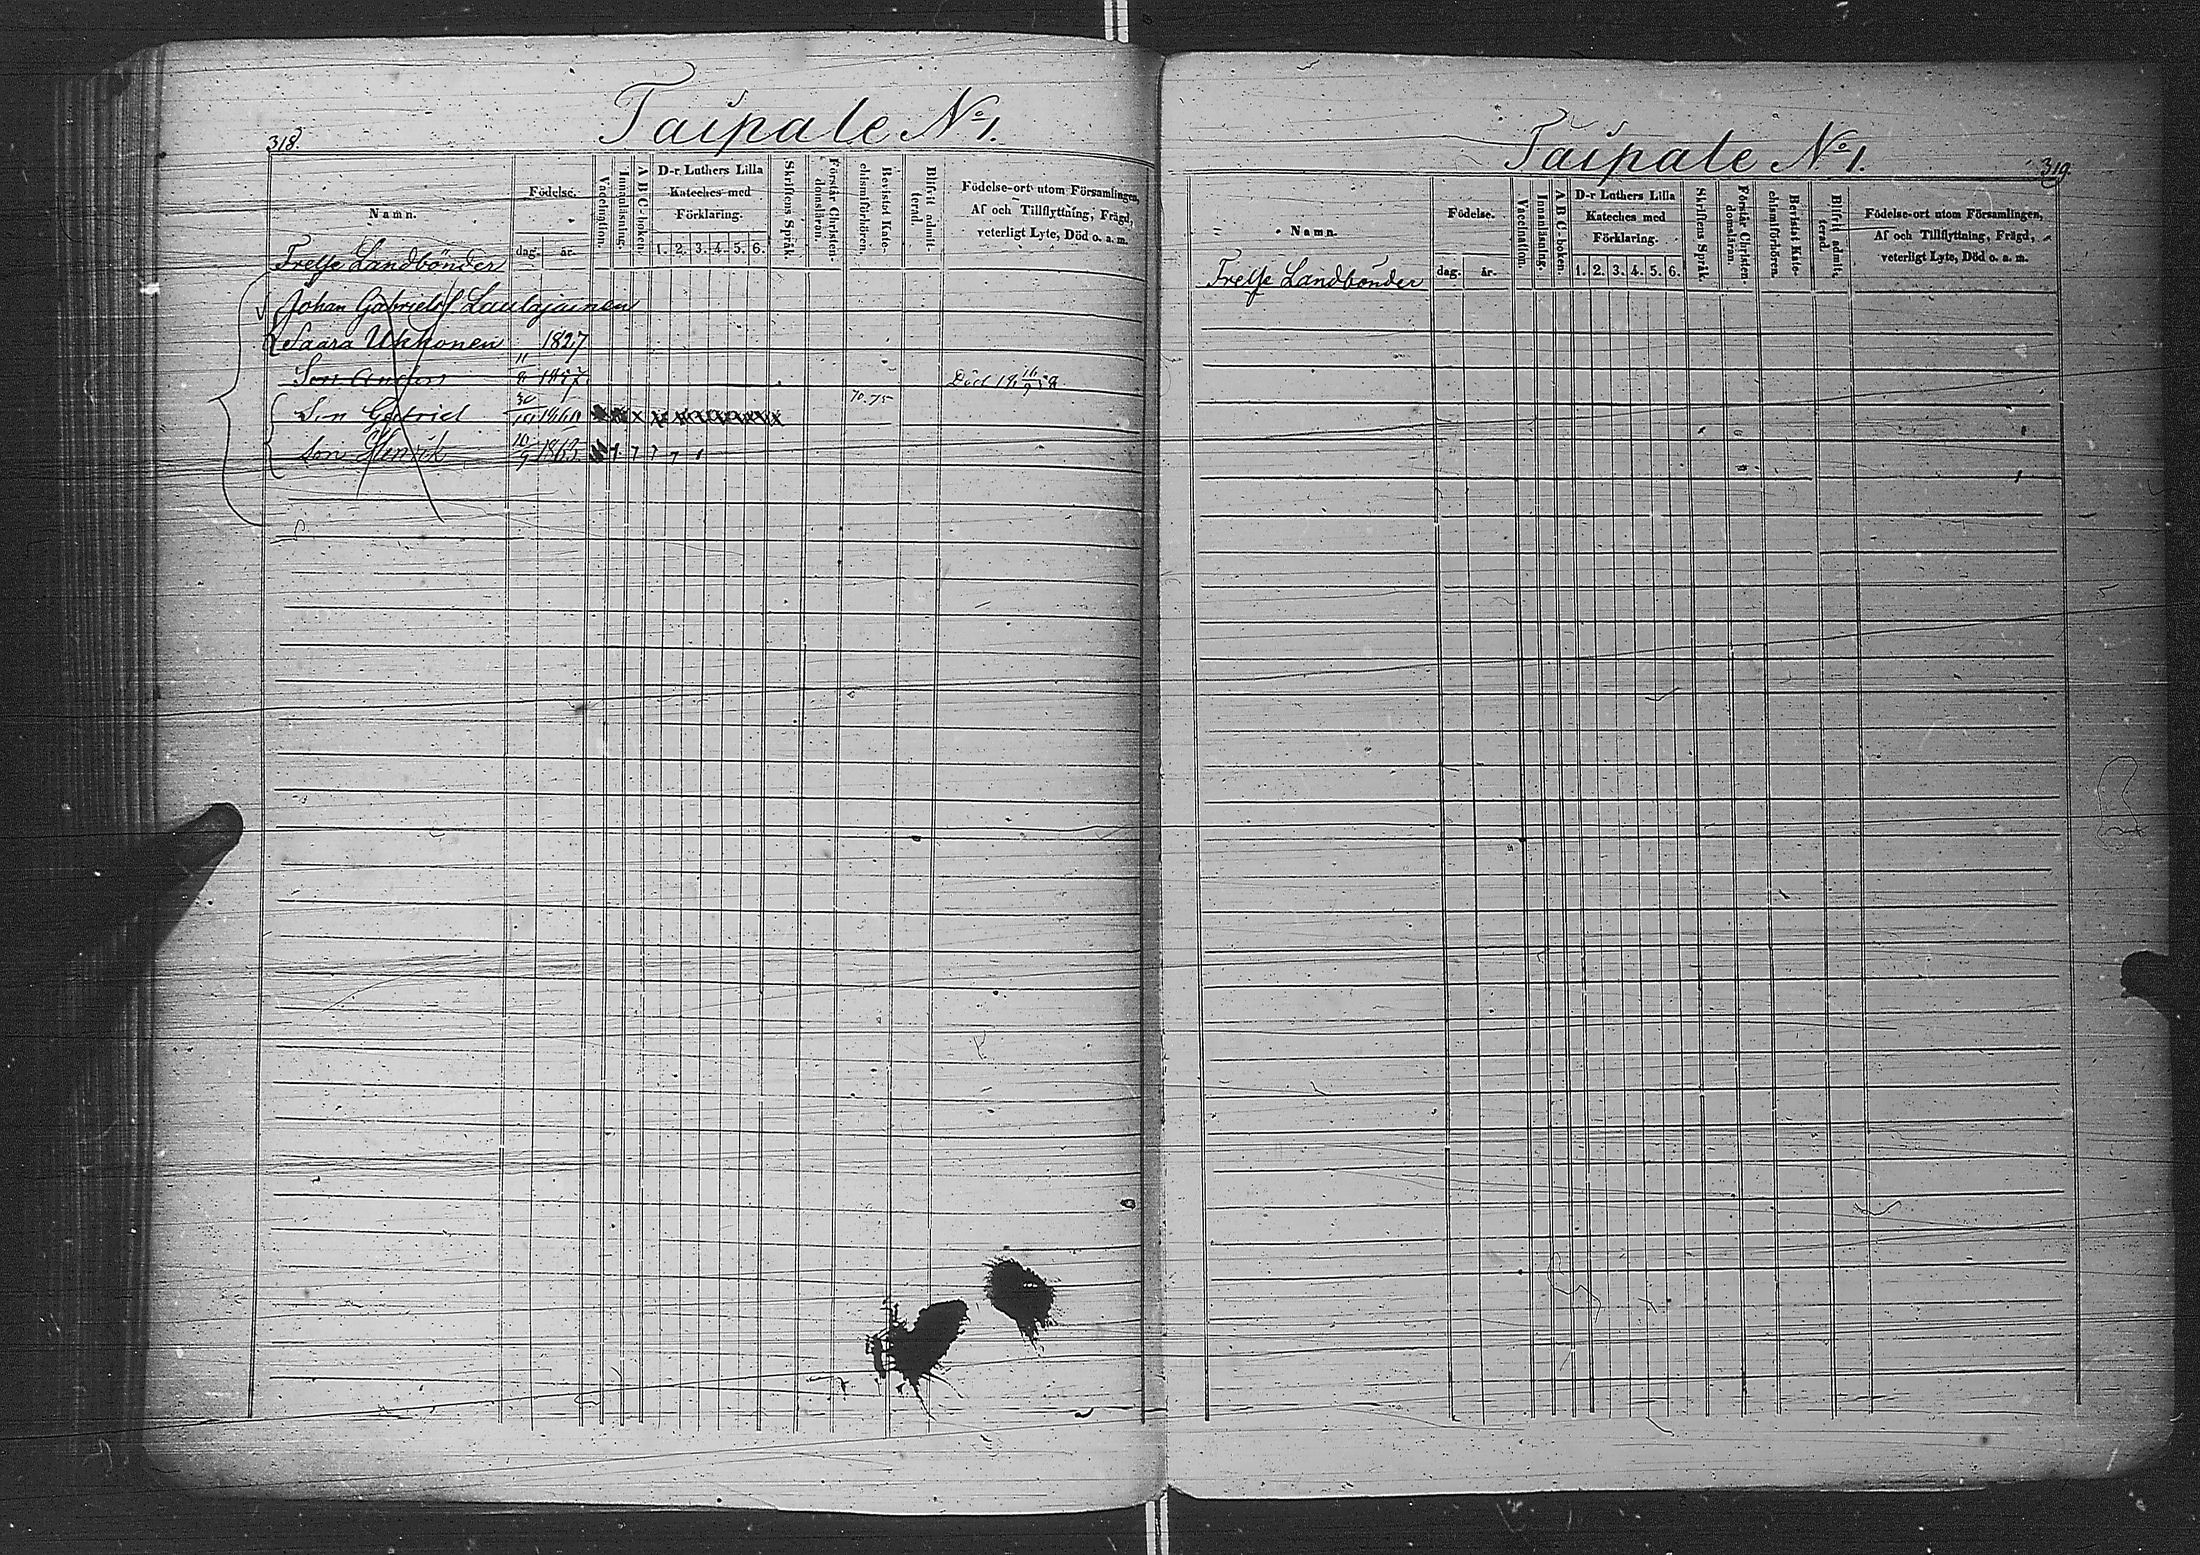 318.
Taipale No 1.
Namn.
Födelse.
dag.
år.
Vaccination.
Innanläsning.
A B C-boken.
D-r Luthers Lilla
Kateches med
Förklaring.
1. 2. 3. 4. 5. 6.
Skriftens Språk.
Förstår Christen-
domsläran.
Bevistat Kate-
chismiförhören.
Blifvit admit-
terad.
Födelse-ort utom Församlingen,
Af och Tillflyttning, Frägd,
veterligt Lyte, Död o. a. m.
Frelse Landbönder
Johan Gabrielsf Laulajainen
Saara Ukkonen 1827
Son Anders 1857 Död
Son Gabriel 30 70. 75
Son Henrik 10/9 1863
Taipale No 1.
319.
Namn.
Födelse.
dag.
år.
Vaccination.
Innanläsning.
A B C-boken.
D-r Luthers Lilla
Kateches med
Förklaring.
1. 2. 3. 4. 5. 6.
Skriftens Språk.
Förstår Christen-
domsläran.
Bevistat Kate-
chismiförhören.
Blifvit admit-
terad.
Födelse-ort utom Församlingen,
Af och Tillflyttning, Frägd,
veterligt Lyte, Död o. a. m.
Frelse Landbönder